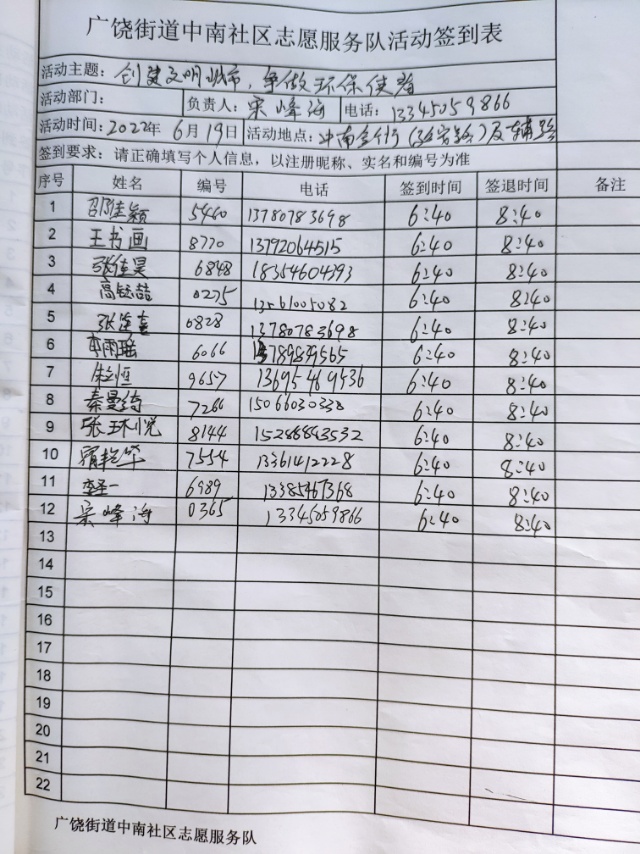 广饶街道中南社区志愿服务队活动签到表
活动主题: 创建文明城市,争做环保使者
活动部门: 负责人: 宋峰海 电话: 13345059866
活动时间: 2022年6月19日 活动地点:
签到要求: 请正确填写个人信息,以注册昵称、实名和编号为准
序号 姓名 编号 电话 签到时间 签退时间 备注
1 5460 13780783698 6:40 8:40
2 王书画 8770 13792064515 6:40 8:40
3 张佳昊 6848 18354604393 6:40 8:40
4 高钰喆 0275 13561005082 6:40 8:40
5 0828 13780783698 6:40 8:40
6 6066 6:40 8:40
7 9657 13695469536 6:40 8:40
8 秦曼绮 7266 15066030338 6:40 8:40
9 8144 15288843532 6:40 8:40
10 7554 13361412228 6:40 8:40
11 6989 13385467368 6:40 8:40
12 宋峰海 0365 13345059866 6:40 8:40
13
14
15
16
17
18
19
20
21
22
广饶街道中南社区志愿服务队